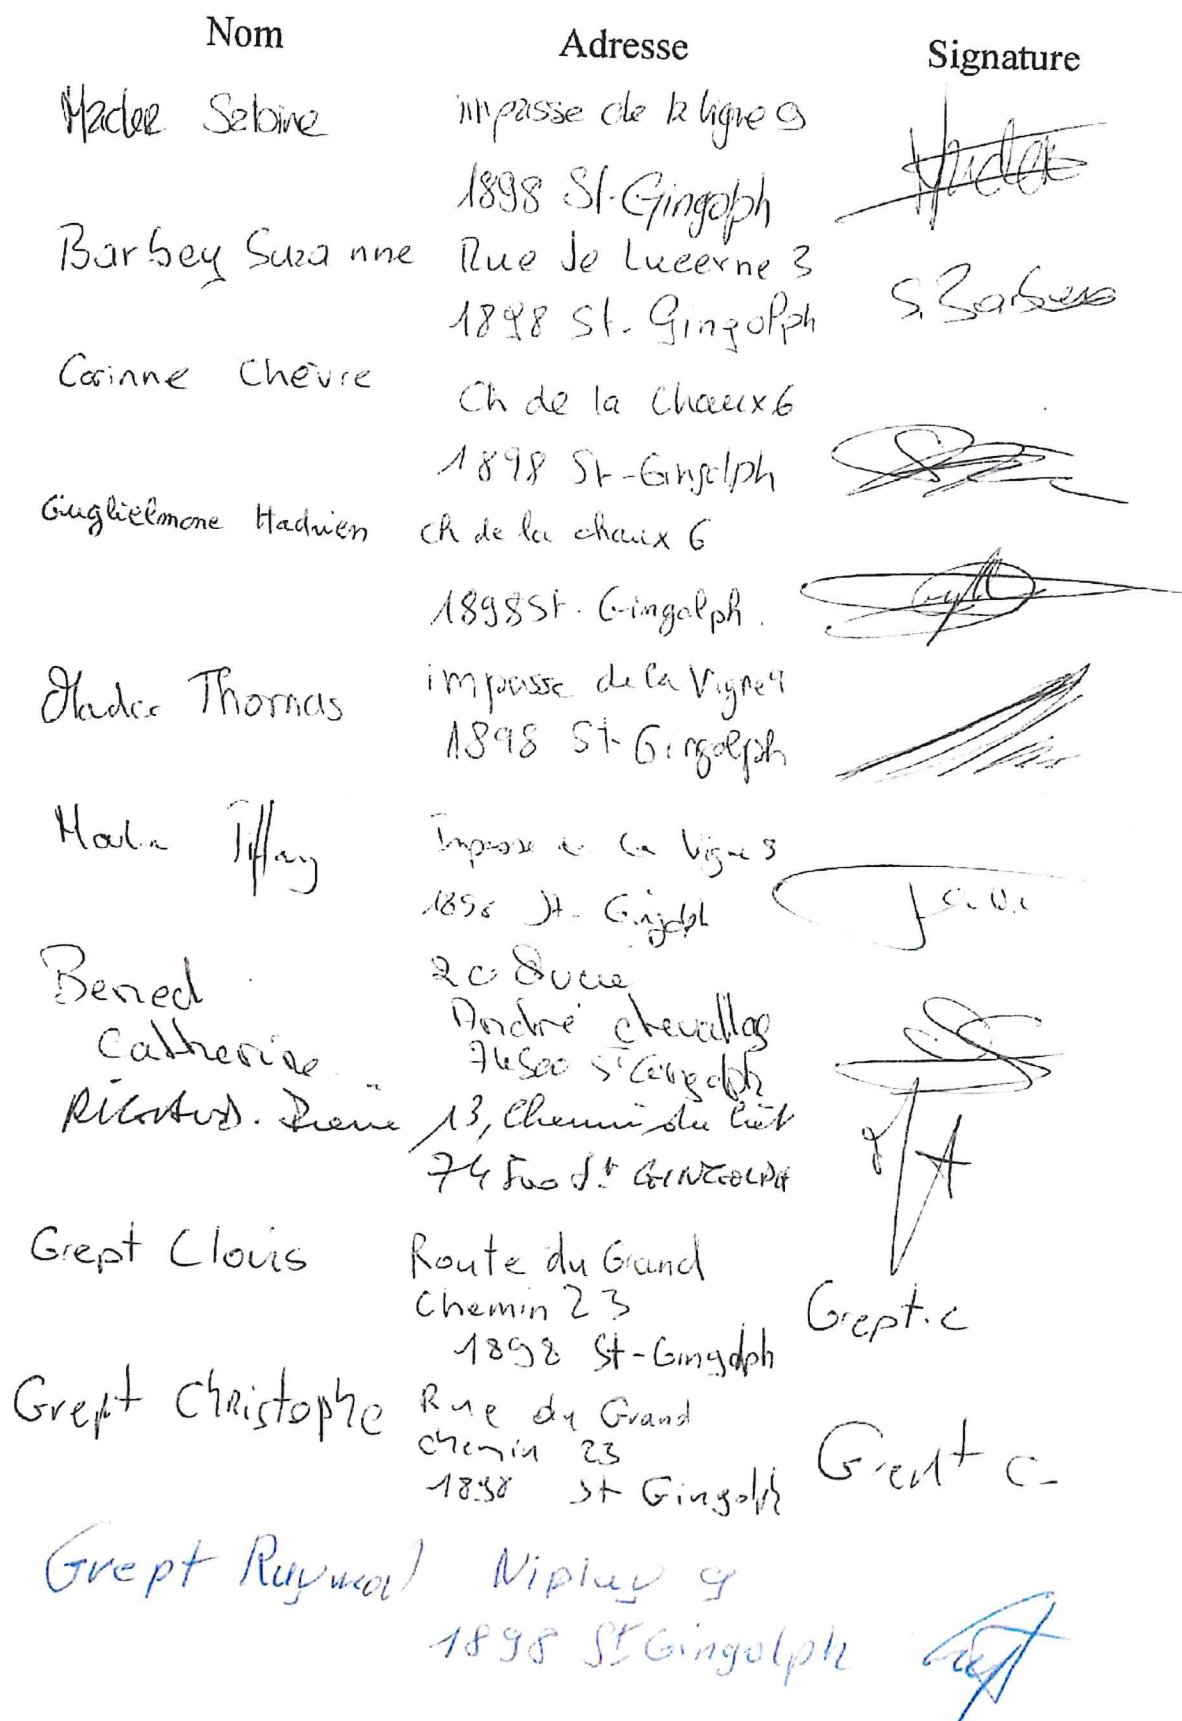 Nom Adresse Signature
Mader Sabine impasse de la Vigne 9
1898 St-Gingolph Mader
Barbey Suzanne Rue de Lucerne 3
1898 St. Gingolph S. Barbey
Corinne Chèvre
Ch de la Chaux 6
1898 St-Gingolph
Guglielmone Hadrien ch de la chaux 6
1898 St. Gingolph.
Mader Thomas impasse de la Vigne 9
1898 St-Gingolph
Tiffany Impasse de la Vigne 9
1898 St-Gingolph
Bened
Catherine
André chevallay
74500 St Gingolph
13, Chemin du
74500 St GINGOLPH
Grept Clovis Route du Grand
Chemin 23 Grept.c
1898 St-Gingolph
Grept Christophe Rue du Grand
chemin 23 Grept C-
1898 St Gingolph
Grept Raymond 9
1898 St Gingolph